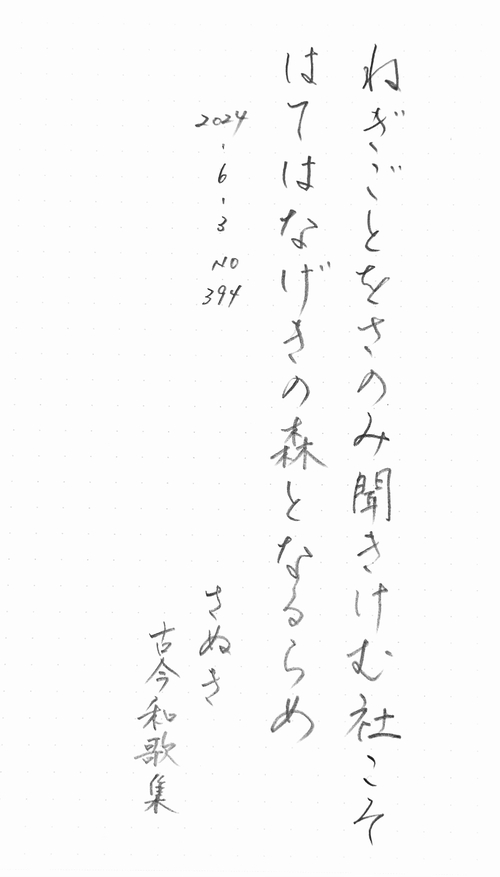 ねぎごとをさのみ聞きけむ社こそ
はてはなげきの森となるらめ
2024-6-3 NO 394
さぬき
古今和歌集